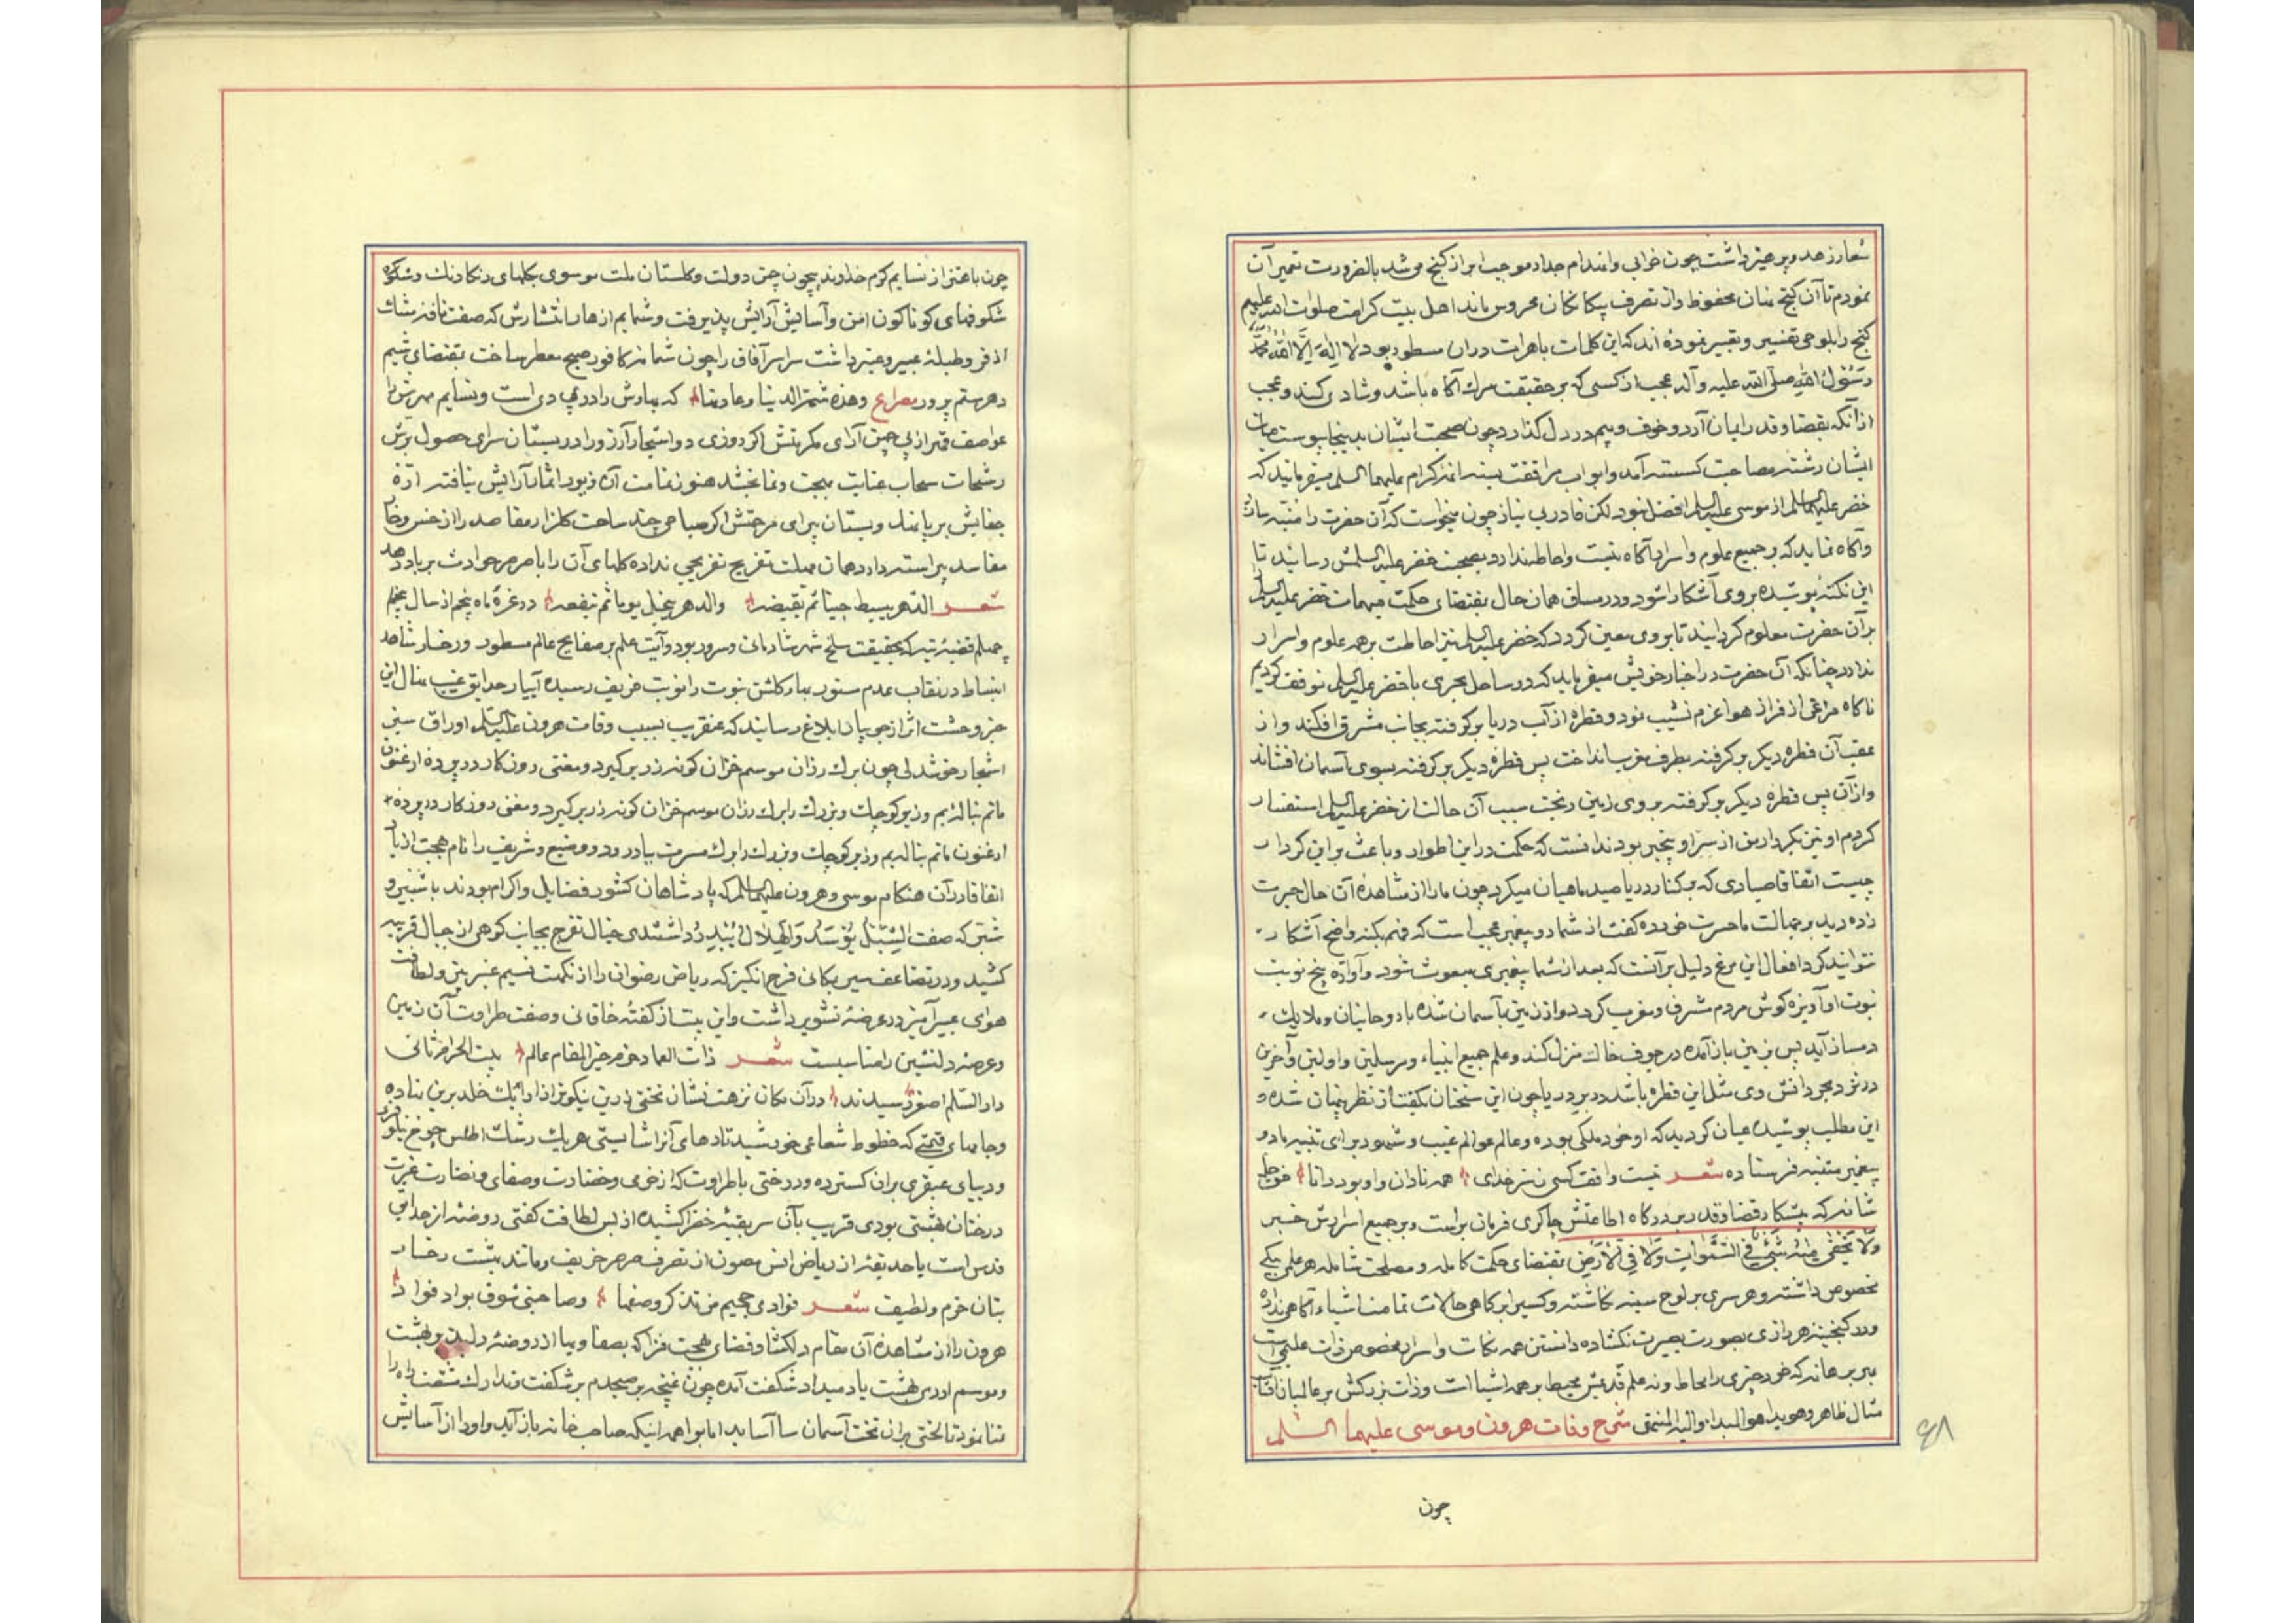 شعار زهد و پرهیز داشت چون خرابی و انهدام جدار موجب ابراز گنج می شد بالضرورت تعمیر آن
نمودم تا آن گنج نهان محفوظ و از تصرف بیکانکان محروس ماند اهل بیت کرامت صلوات الله علیهم
کنج را بلوحی تفسیر و تعبیر نموده اند که این کلمات باهرات دران مسطور بود لا اله الا الله محمد
رسول الله صلی الله علیه و آله عجب از کسی که بر حقیقت مرک آکاه باشد و شادی کند و عجب
از آنکه بقضا و قدر ایمان آرد و خوف و بیم در دل کذارد چون صحبت ایشان بدینجا پیوست حیات
ایشان رشته مصاحبت کسسته آمد و ابواب مرافقت بسته ائمه کرام علیهما السلم میفرمایند که
خضر علیه السلم از موسی علیه السلم افضل نبود لکن قادر بی نیاز چون میخواست که آن حضرت را متنبه سازد
و آکاه نماید که بر جمیع علوم و اسرار آکاه نیست و احاطه ندارد بصحبت خضر علیه السلمش رسانید تا
این نکته پوشیده بر وی آشکار شود و در مساق همان حال بقتضای حکمت مبهمات خضر علیه السلم
بر آن حضرت معلوم کردانید تا بر وی معین کردد که خضر علیه السلم نیز احاطت بر همه علوم و اسرار
ندارد چنانکه آن حضرت در اخبار خویش میفرماید که در ساحل بحری با خضر علیه السلم توقف کردیم
ناکاه مرغی از فراز هوا عزم نشیب نمود و قطره از آب دریا برکرفته بجانب مشرق افکند و از
عقب آن قطره دیکر برکرفته بطرف مغرب انداخت پس قطره دیکر برکرفته بسوی آسمان افشاند
و از آن پس قطره دیکر برکرفته بروی زمین ریخت سبب آن حالت از خضر علیه السلم استفسار
کردم او نیز بکردار من از سر او بیخبر بود ندانست که حکمت در این اطوار و باعث بر این کردار
چیست اتفاقا صیادی که بر کنار دریا صید ماهیان میکرد چون ما را از مشاهده آن حال حیرت
زده دید بر جهالت ما حسرت خورده کفت از شما دو پیغمبر عجب است که فهم نکته واضح آشکار
نتوانید کرد افعال این مرغ دلیل بر آنست که بعد از شما پیغمبری مبعوث شود و آوازه پنج نوبت
نبوت او آویزه کوش مردم مشرق و مغرب کردد و از زمین بآسمان شده با روحانیان و ملایک
دمساز آید پس بزمین باز آمده در جوف خاک منزل کند و علم جمیع انبیاء و مرسلین و اولین و آخرین
در نزد بحر دانش وی مثل این قطره باشد در بر دریا چون این سخنان بکفت از نظر پنهان شده و
این مطلب پوشیده عیان کردید که او خود ملکی بوده و عالم عوالم غیب و شهود برای تنبیه ما دو
پیغمبر متنبه فرستاده شعر نیست واقف کسی ز سر خدای همه نادان و او بود دانا خوجل
شانه که پیشکار قضا و قدر بر درکاه اطاعتش چاکری فرمان براست و بر جمیع اسرارش خبر
ولا یخفی منه شیئ فی السموات ولا فی الارض بقتضای حکمت کامله و مصلحت شامله هر علمی بیکی
مخصوص داشته و هر سری بر لوح سینه نکاشته و کسی را برکماهی حالات تمامت اشیاء آکاهی نداده
و در کنجینه هر رازی بصورت بصیرت نکشاده دانستن همه نکات و اسرار مخصوص ذات علیمی است
ببر برهانه که خود چیزی را محاط و نه علم قدیمش محیط بر همه اشیا است و ذات بزرکش بر عالمیان آفتاب
مثال ظاهر و هویدا هو المبدا و الیه المنتهی شرح وفات هرون و موسی علیهما السلم
چون
۴۸
چون باهتزاز نسایم کرم خداوند بیچون چمن دولت و کلستان ملت موسوی بکلهای رنکارنک و شکو
شکوفهای کوناکون امن و آسایش آرایش پذیرفت و شمایم ازهار انتشارش که صفت نافه مشک
اذفر و طبله عبیر و عنبر داشت سراسر آفاق را چون شمامه کافور صبح معطر ساخت بقتضای شیم
دهر ستم پرور مصراع وهذه شیمة الدنیا و عادتها که بهارش را در پی دی است و نسایم مهرش را
عواصف قهر از پی چمن آرای مکرمتش اکر روزی دو اشجار آرزو را در بستان سرای حصول برش
رشحات سحاب عنایت بهجت و نما بخشد هنوز تمامت آن بزیور اثمار آرایش نیافته اره
جفایش بر پا نهد و بستان پیرای مرحمتش اکر صباحی چند ساحت کلزار مقاصد را از خس و خار
مفاسد پیراسته دارد همان مهلت تفریح تفرجی نداده کلهای آن را با صرصر حوادث بر باد دهد
شعر الدهر یبسط حینا ثم یقبضه والدهر ینخل یوما ثم ینفعه در غره ماه پنجم از سال پنجم
چهلم قضیه تیه که بحقیقت سلخ شهر شادمانی و سرور بود و آیت علم بر صفایح عالم مسطور و رخسار شاهد
انبساط در نقاب عدم مستور بهار کلشن نبوت را نوبت خریف رسیده آبیار حدایق غیب منال این
خبر وحشت اثر از جویبار ابلاغ رسانید که عنقریب بسبب وفات هرون علیه السلم اوراق سبز
اشجار خوشدلی چون برک رزان موسم خزان کونه زر بر کیرد و مغنی روزکار در پرده ارغنون
ماتم بنالد بم و زیر کوچک و بزرک را برک رزان موسم خزان کونه زر بر کیرد و مغنی روزکار در پرده
ارغنون ماتم بناله بم و زیر کوچک و بزرک را برک مسرت بباد رود و وضیع و شریف را نام بهجت از یاد
اتفاقا در آن هنکام موسی و هرون علیهما السلم که پادشاهان کشور فضایل و اکرام بودند با شبیر و
شبر که صفت الشبل یؤسد والهلال یبدر داشتندی خیال تفرج بجانب کوهی از جبال قریبه
کشید و در تضاعف سیر بکانی فرح انکیز که ریاض رضوان را از نکهت نسیم عنبر بیز و لطافت
هوای عبیر آمیز در عرضه تشویر داشت و این بیت از کفته خاقانی وصفت طراوت آن زمین
و عرصه دلنشین را مناسبت شعر ذات العماد خرم خیر المقام عالم بیت الحرام ثانی
دار السلم اصغر رسیدند در آن مکان نزهت نشان تختی زرین نیکوتر از ارائک خلد برین نهاده
و جامهای قیمتی که خطوط شعاعی خورشید تارهای آنرا شایستی هر یک رشک اطلس چرخ نیلو
و دیبای عبقری بران کسترده و درختی باطراوت که از خرمی و خضارت و صفای و نضارت غیرت
درختان بهشتی بودی قریب بآن سر بقبه خضرا کشیده از بس لطافت کفتی روضه از حدایق
قدس است یا حدیقه از ریاض انس مصون از تصرف صرصر خریف و مانند بهشت رخسار
بتان خرم و لطیف شعر فوادی جحیم من تذکر وصفها وصاحبنی شوق بواد فواد
هرون را از مشاهده آن مقام دلکشا و فضای بهجت فزا که بصفا و بها از روضه دلبند بهشت
و موسم اردی بهشت یاد میداد شکفت آمده چون غنچه بر صبحدم بر شکفت و تدارک مشقت راه را
تمنا نمود تا لختی بران تخت آسمان سا آساید اما بواهمه اینکه صاحب خانه باز آید و او را از آسایش